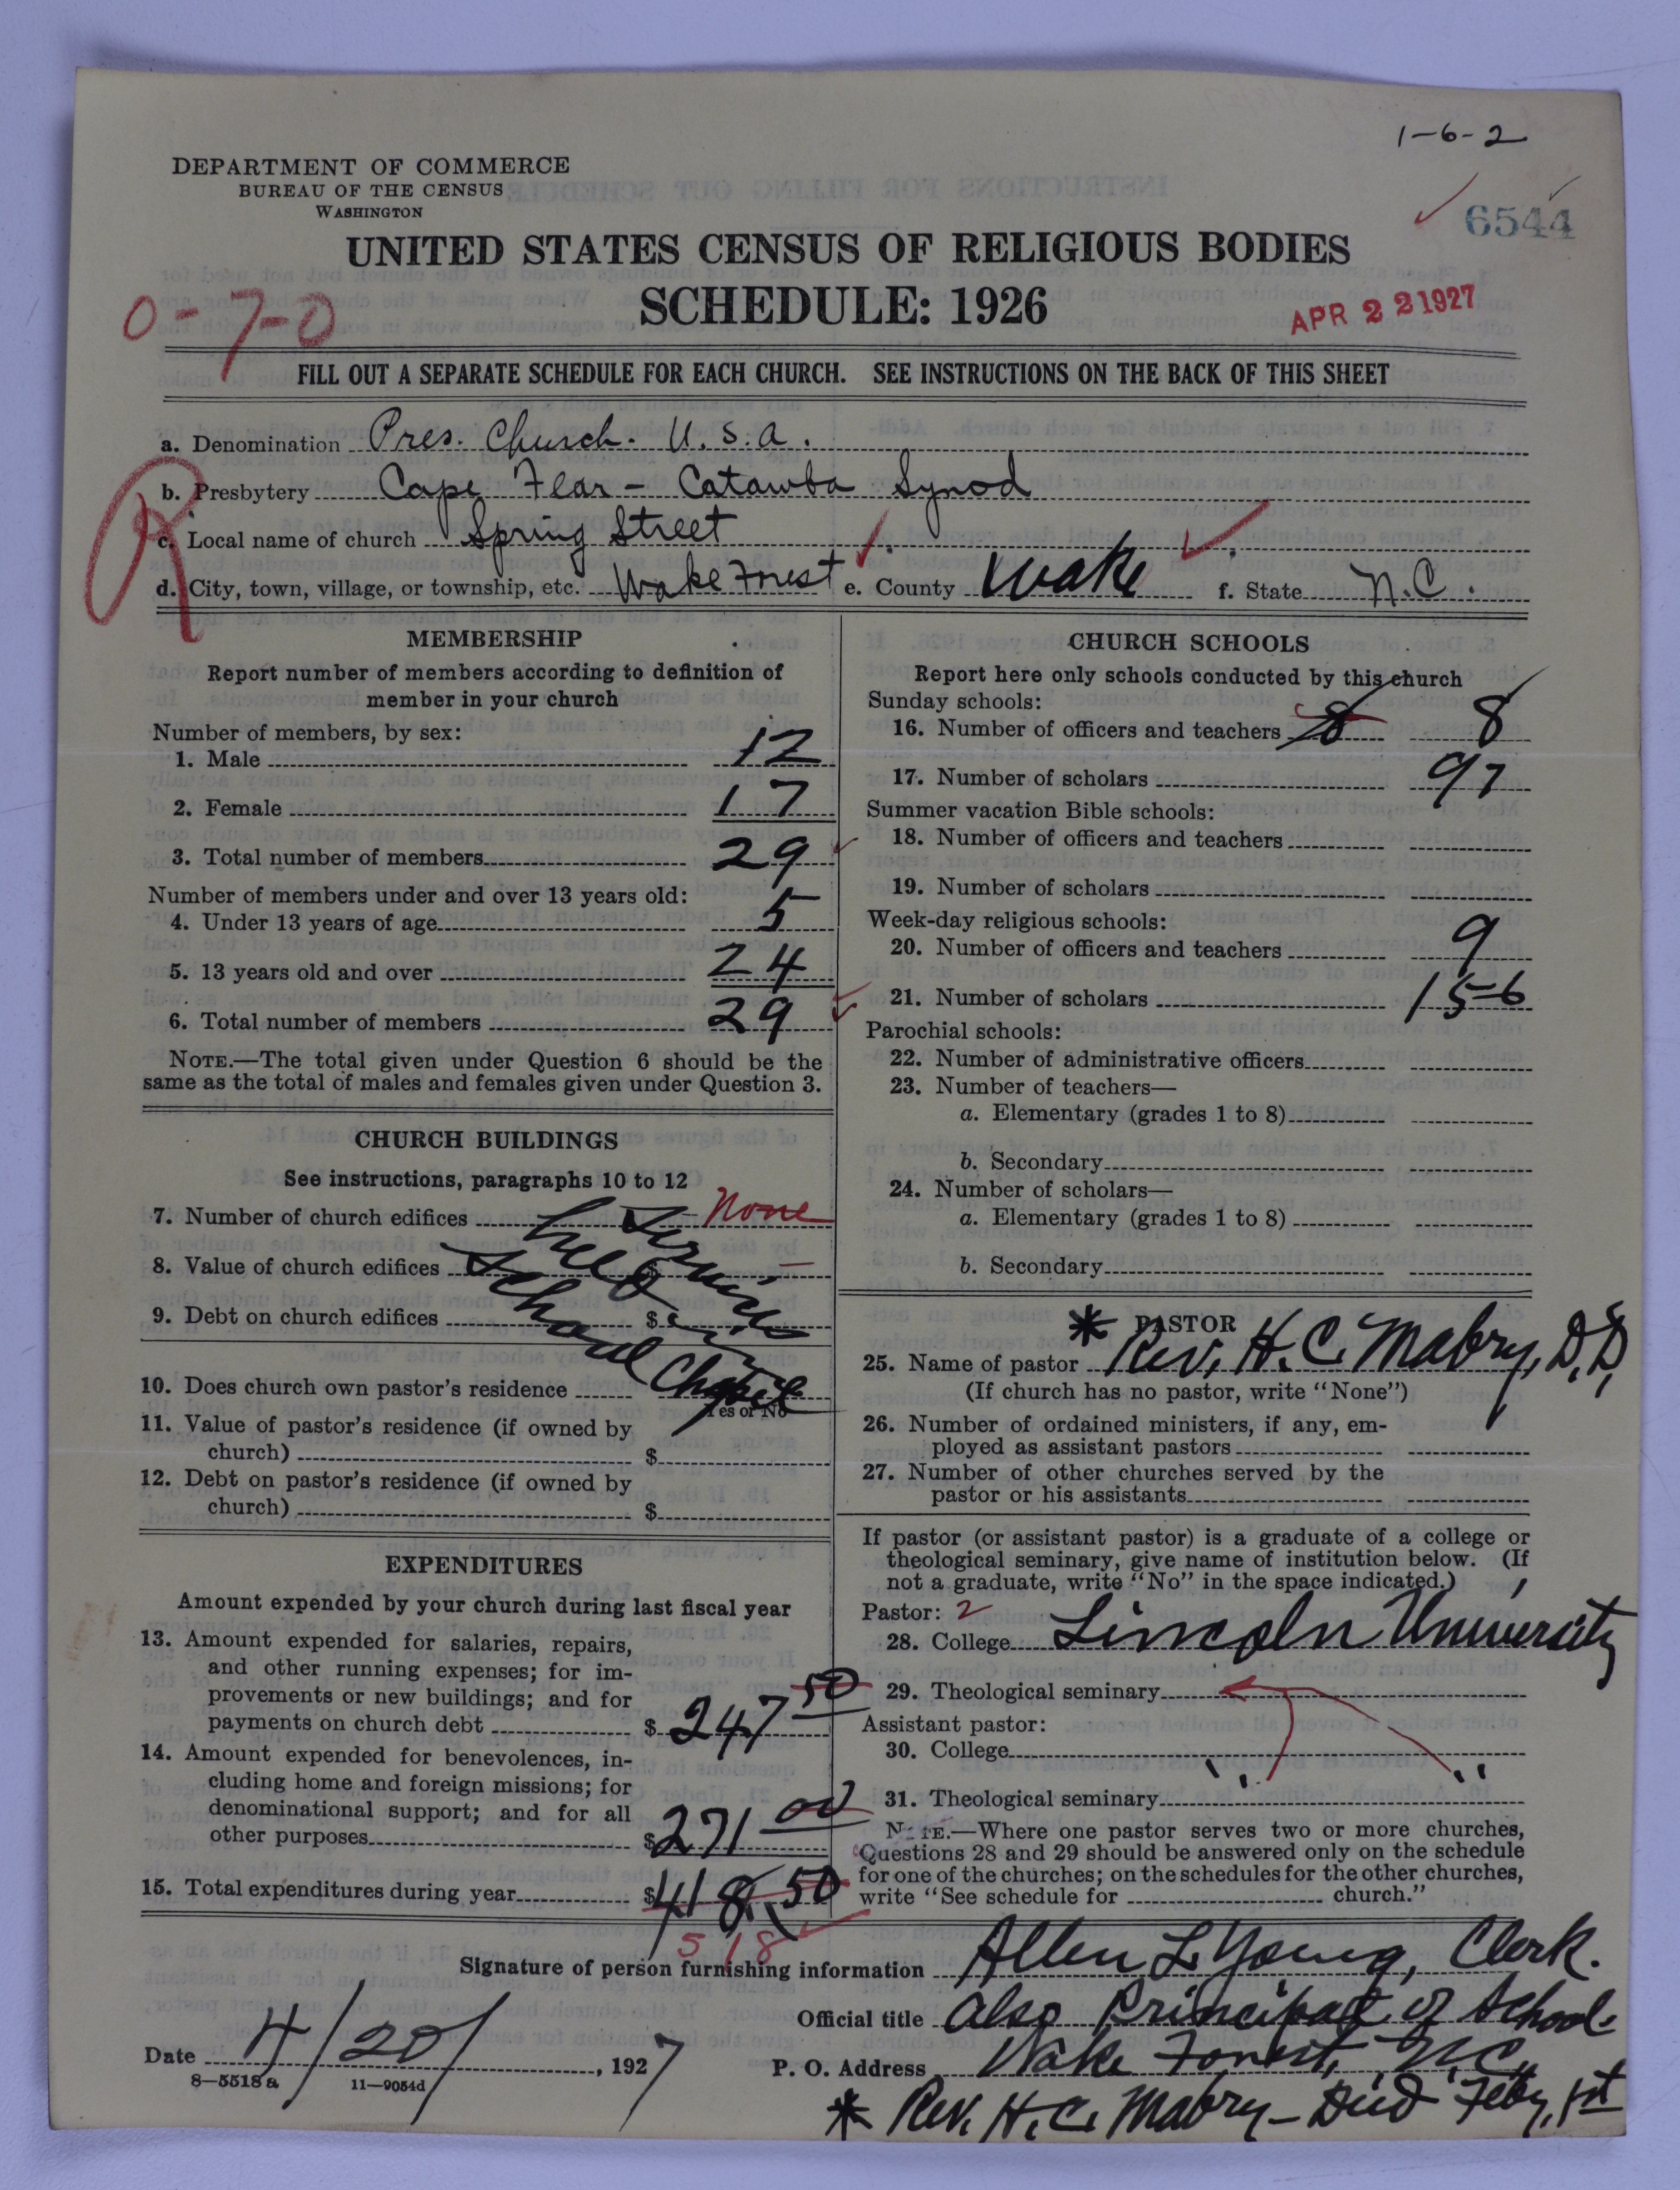 1-6-2
DEPARTMENT OF COMMERCE
BUREAU OF THE CENSUS
WASHINGTON
6544
UNITED STATES CENSUS OF RELIGIOUS BODIES
SCHEDULE: 1926
0-7-0
APR 22 1927
FILL OUT A SEPARATE SCHEDULE FOR EACH CHURCH. SEE INSTRUCTIONS ON THE BACK OF THIS SHEET
a. Denomination Pres. Church. U.S.A.
b. Presbytery Cape Fear - Catawba Synod
R
c. Local name of church Spring Street
d. City, town, village, or township, etc. Wake Forest e. County Wake f. State N.C.
MEMBERSHIP
Report number of members according to definition of
member in your church
Number of members, by sex:
1. Male 12
2. Female 17
3. Total number of members 29
Number of members under and over 13 years old:
4. Under 13 years of age 5
5. 13 years old and over 24
6. Total number of members 29
NOTE.—The total given under Question 6 should be the
same as the total of males and females given under Question 3.
CHURCH BUILDINGS
See instructions, paragraphs 10 to 12
7. Number of church edifices None
8. Value of church edifices $
9. Debt on church edifices $
Services
held in
School
Chapel
10. Does church own pastor's residence
Yes or No
11. Value of pastor's residence (if owned by
church) $
12. Debt on pastor's residence (if owned by
church) $
EXPENDITURES
Amount expended by your church during last fiscal year
13. Amount expended for salaries, repairs,
and other running expenses; for im-
provements or new buildings; and for
payments on church debt $ 247 50
14. Amount expended for benevolences, in-
cluding home and foreign missions; for
denominational support; and for all
other purposes $ 271 00
15. Total expenditures during year $ 418.50
518
CHURCH SCHOOLS
Report here only schools conducted by this church
Sunday schools:
16. Number of officers and teachers 8 8
17. Number of scholars 97
Summer vacation Bible schools:
18. Number of officers and teachers
19. Number of scholars
Week-day religious schools:
20. Number of officers and teachers 9
21. Number of scholars 156
Parochial schools:
22. Number of administrative officers
23. Number of teachers—
a. Elementary (grades 1 to 8)
b. Secondary
24. Number of scholars—
a. Elementary (grades 1 to 8)
b. Secondary
* PASTOR
25. Name of pastor Rev. H. C. Mabry, D.D.
(If church has no pastor, write "None")
26. Number of ordained ministers, if any, em-
ployed as assistant pastors
27. Number of other churches served by the
pastor or his assistants
If pastor (or assistant pastor) is a graduate of a college or
theological seminary, give name of institution below. (If
not a graduate, write "No" in the space indicated.)
Pastor: 2
28. College Lincoln University
29. Theological seminary
Assistant pastor:
30. College
31. Theological seminary " "
NOTE.—Where one pastor serves two or more churches,
Questions 28 and 29 should be answered only on the schedule
for one of the churches; on the schedules for the other churches,
write "See schedule for church."
Signature of person furnishing information Allen L. Young, Clerk.
Official title also Principal of School.
Date 4/20/, 1927 P. O. Address Wake Forest, N.C.
8—5518a 11—9054d
* Rev. H. C. Mabry - Died Feby. 1st